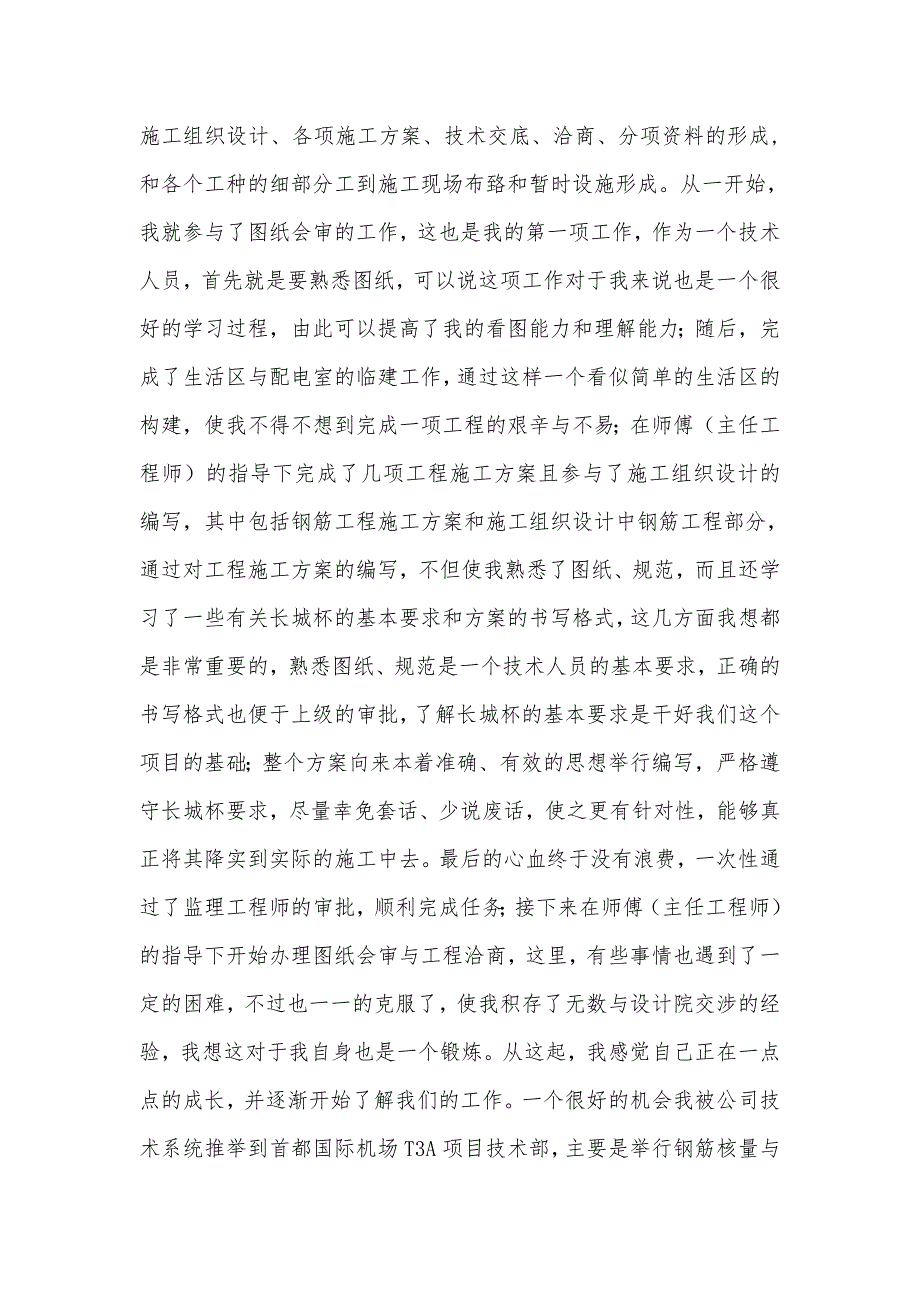 施工组织设计、各项施工方案、技术交底、洽商、分项资料的形成,
和各个工种的细部分工到施工现场布臵和暂时设施形成。从一开始,
我就参与了图纸会审的工作,这也是我的第一项工作,作为一个技术
人员,首先就是要熟悉图纸,可以说这项工作对于我来说也是一个很
好的学习过程,由此可以提高了我的看图能力和理解能力;随后,完
成了生活区与配电室的临建工作,通过这样一个看似简单的生活区的
构建,使我不得不想到完成一项工程的艰辛与不易;在师傅(主任工
程师)的指导下完成了几项工程施工方案且参与了施工组织设计的
编写,其中包括钢筋工程施工方案和施工组织设计中钢筋工程部分,
通过对工程施工方案的编写,不但使我熟悉了图纸、规范,而且还学
习了一些有关长城杯的基本要求和方案的书写格式,这几方面我想都
是非常重要的,熟悉图纸、规范是一个技术人员的基本要求,正确的
书写格式也便于上级的审批,了解长城杯的基本要求是干好我们这个
项目的基础;整个方案向来本着准确、有效的思想举行编写,严格遵
守长城杯要求,尽量幸免套话、少说废话,使之更有针对性,能够真
正将其降实到实际的施工中去。最后的心血终于没有浪费,一次性通
过了监理工程师的审批,顺利完成任务;接下来在师傅(主任工程师)
的指导下开始办理图纸会审与工程洽商,这里,有些事情也遇到了一
定的困难,不过也一一的克服了,使我积存了无数与设计院交涉的经
验,我想这对于我自身也是一个锻炼。从这起,我感觉自己正在一点
点的成长,并逐渐开始了解我们的工作。一个很好的机会我被公司技
术系统推举到首都国际机场 T3A 项目技术部,主要是举行钢筋核量与